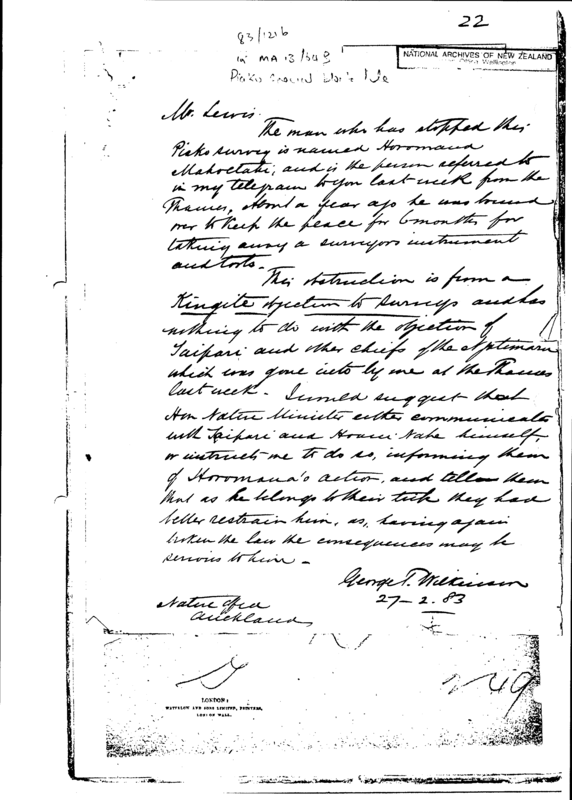 22
83/1216
in MA 13/54 g
Piako Ground
NATIONAL ARCHIVES OF NEW ZEALAND
Office Wellington
Mr. Lewis
The man who has stopped this
Piako survey is named Horomana
and is the person referred to
in my telegram to you last week from the
Thames, About a year ago he was bound
over to keep the peace for 6 months for
taking away a surveyors instrument
and tools.
This obstruction is from a
Kingite objection to surveys and has
nothing to do with the objection of
Taipari and other chiefs of the Ngatimaru
which was gone into by me at the Thames
last week. I would suggest that
Hon Native Minister either communicates
with Taipari and Hoani Nahe himself,
or instructs me to do so, informing them
of Horomana's action, and tell them
that as he belongs to their tribe they had
better restrain him, as, having again
broken the law the consequences may be
serious to him -
George T. Wilkinson
27-2.83
Native Office
Auckland
LONDON:
WATERLOW AND SONS LIMITED, PRINTERS,
LONDON WALL.
49